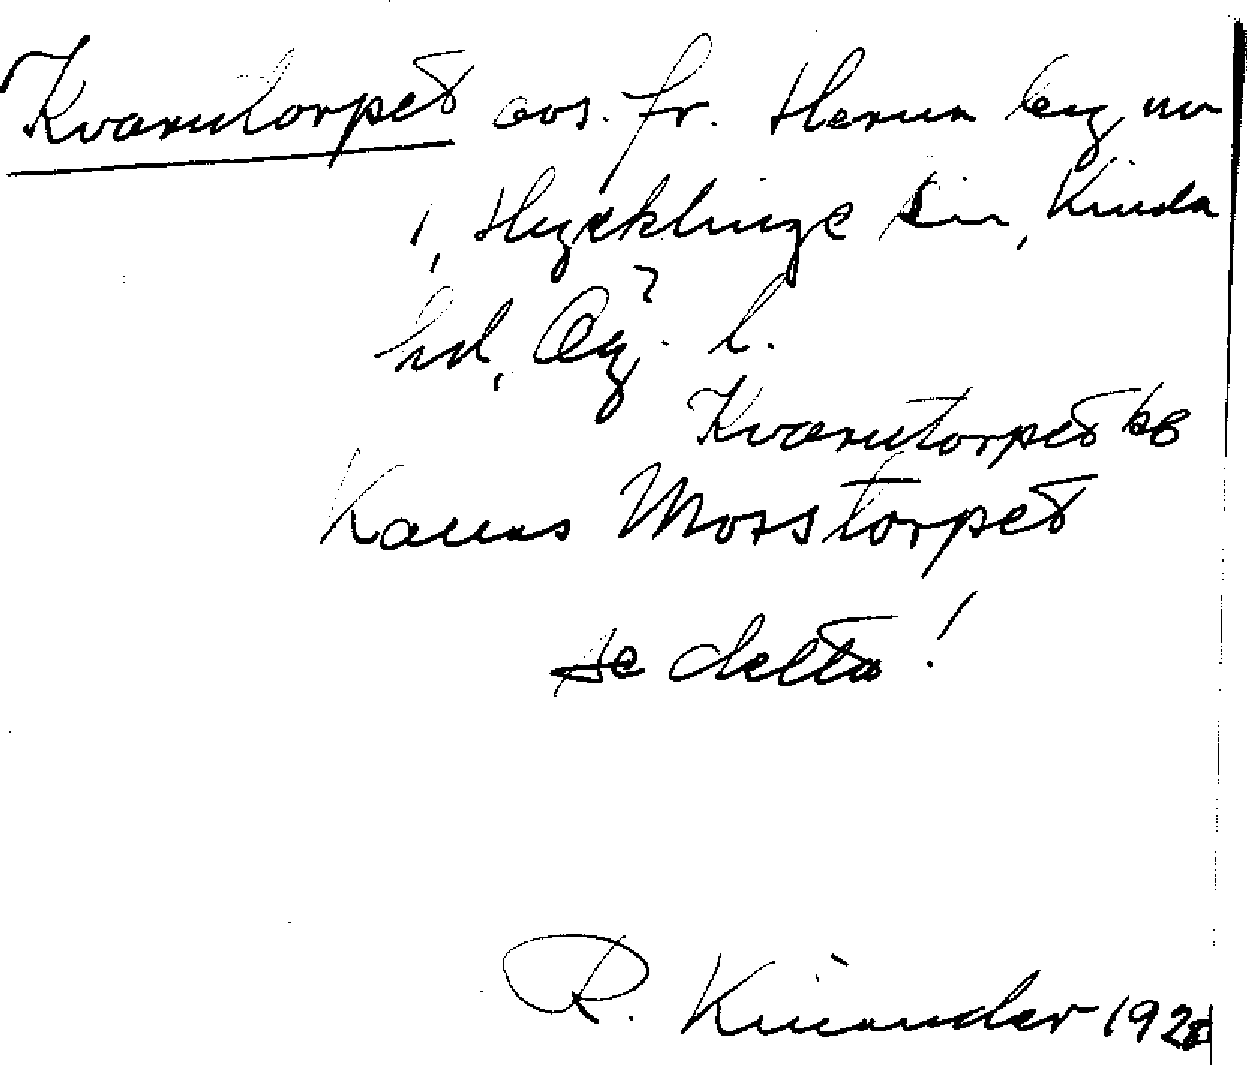 Kvarntorpet avs. fr. Herrum by, nu
i, Hycklinge sn, Kinda
hd, Ög. l.
Kvarntorpet
Kallas Mosstorpet
se detta!
R. Kinander 192